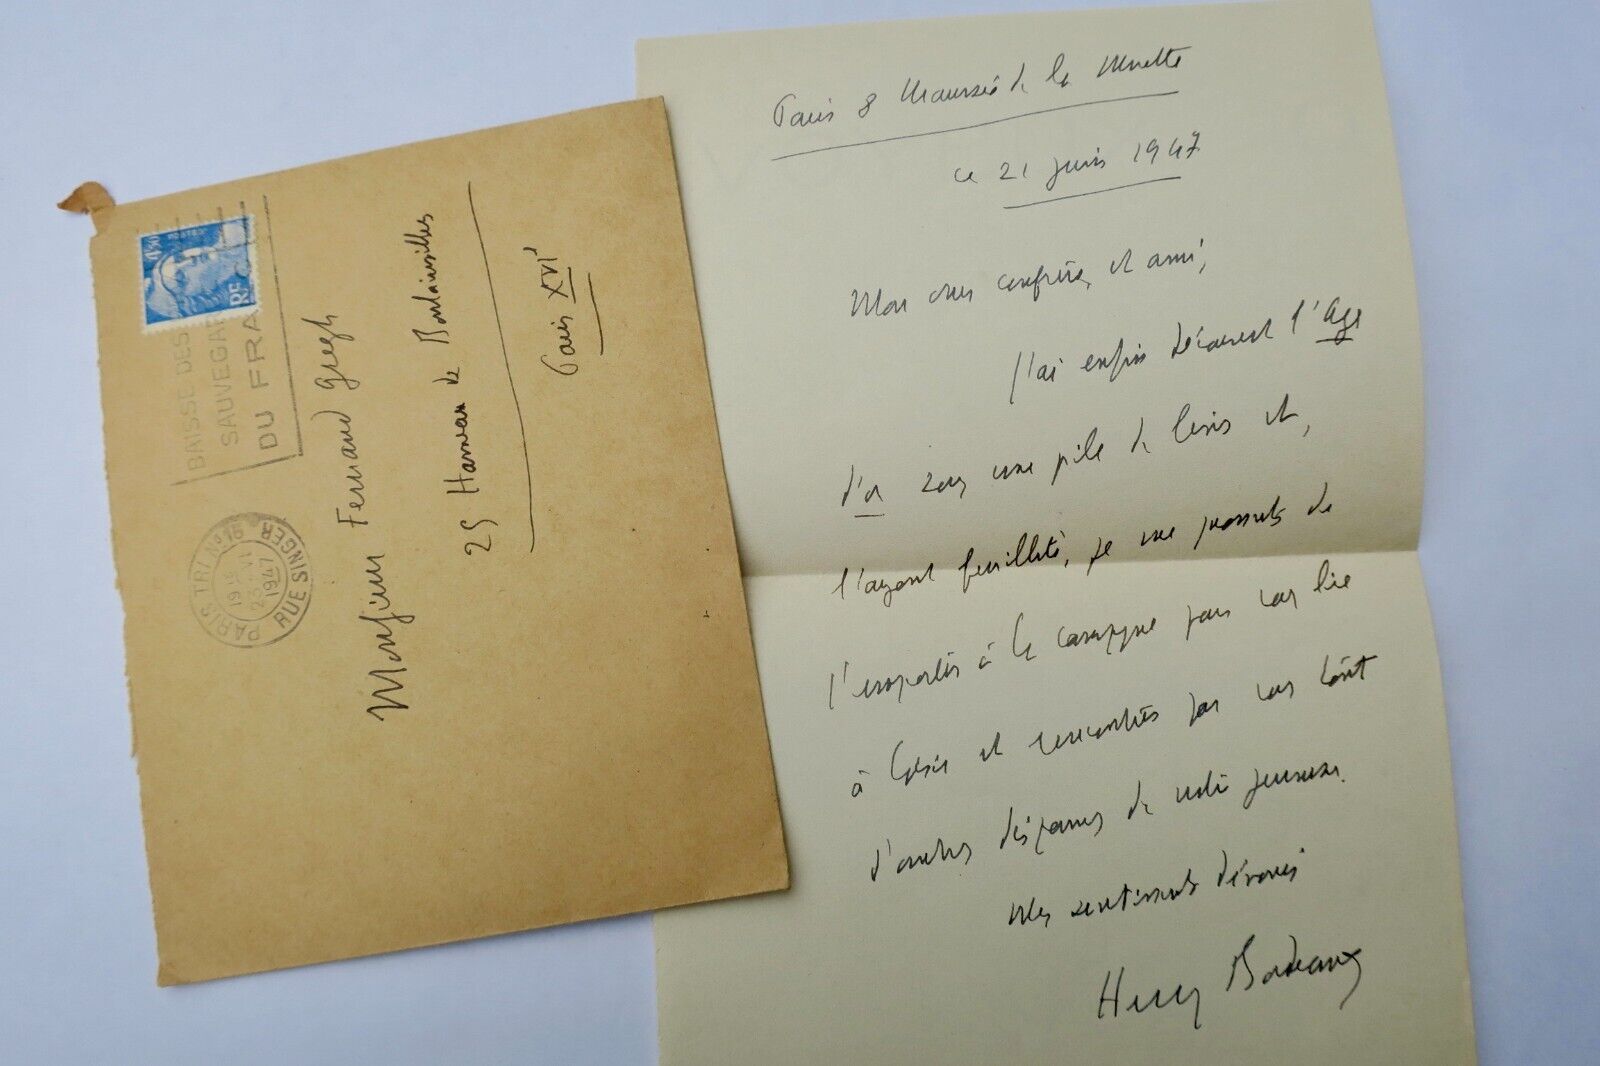 4f50
POSTES
RF
BAISSE DES
SAUVEGAR
DU FRA
PARIS TRI. Nº 16
RUE SINGER
19 H
23 VI
1947
Monsieur Fernand Gregh
25 Hameau de Boulainvilliers
Paris XVIe
Paris 8 Chaussée de la Muette
ce 21 juin 1947
Mon cher confrère et ami,
J'ai enfin découvert l'Age
d'or sous une pile de livres et,
l'ayant feuilleté, je me promets de
l'emporter à la campagne pour vous lire
à loisir et rencontrer par vous tant
d'ombres disparues de notre jeunesse.
Mes sentiments dévoués
Henry Bordeaux